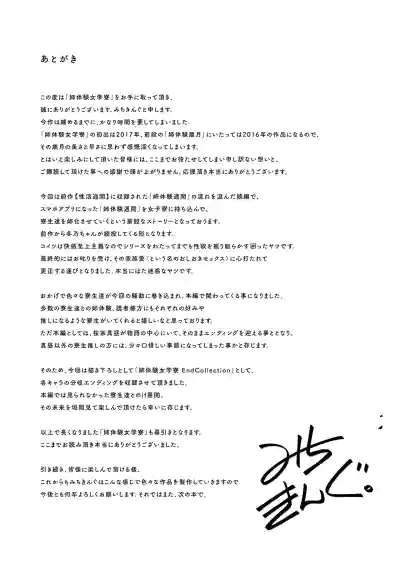 あとがき
この度は「姉体験女学寮」をお手に取って頂き、
誠にありがとうございます、みちきんぐと申します。
今作は纏めるまでに、かなり時間を要してしまいました。
「姉体験女学寮」の初出は2017年、前段の「姉体験歳月」にいたっては2016年の作品になるので、
その歳月の長さと早さに思わず感慨深くなってしまいます。
とはいえ楽しみにして頂いた皆様には、ここまでお待たせしてしまい申し訳ない想いと、
ご購読して頂けた事への感謝で頭が上がりません。応援頂き本当にありがとうございます。
今回は前作【性活週間】に収録された「姉体験週間」の流れを汲んだ続編で、
スマホアプリになった「姉体験週間」を女子寮に持ち込んで、
寮生達を姉化させていくという背徳的なストーリーとなっております。
前作から幸乃ちゃんが続投してくる形となります。
コイツは快感至上主義なのでシリーズをわたってまでも性欲を振り撒らかす困ったヤツです。
最終的にはお叱りを受け、その家族愛(という名のおしおきセックス)に心打たれて
更正する運びとなりました。本当にはた迷惑なヤツです。
おかげで色々な寮生達が今回の騒動に巻き込まれ、本編で関わってくる事になりました。
多数の寮生達との姉体験、読者様方にもそれぞれの好みや
推しになるような寮生がいてくれると嬉しいなと思っております。
ただ本編としては、桜家真昼が物語の中心にいて、そのままエンディングを迎える事となり、
真昼以外の寮生推しの方には、少々口惜しい事態になってしまった事かと存じます。
そのため、今回は描き下ろしとして「姉体験女学寮 EndCollection」として、
各キャラの分岐エンディングを収録させて頂きました。
本編では見られなかった寮生達とのif展開、
その未来を垣間見て楽しんで頂けたら幸いに存じます。
以上で長くなりました「姉体験女学寮」も幕引きとなります。
ここまでお読み頂き本当にありがとうございました。
引き続き、皆様に楽しんで頂ける様、
これからもみちきんぐはこんな感じで色々な作品を製作していきますので
今後とも何卒よろしくお願いします。それではまた、次の本で。
みち
きんぐ。